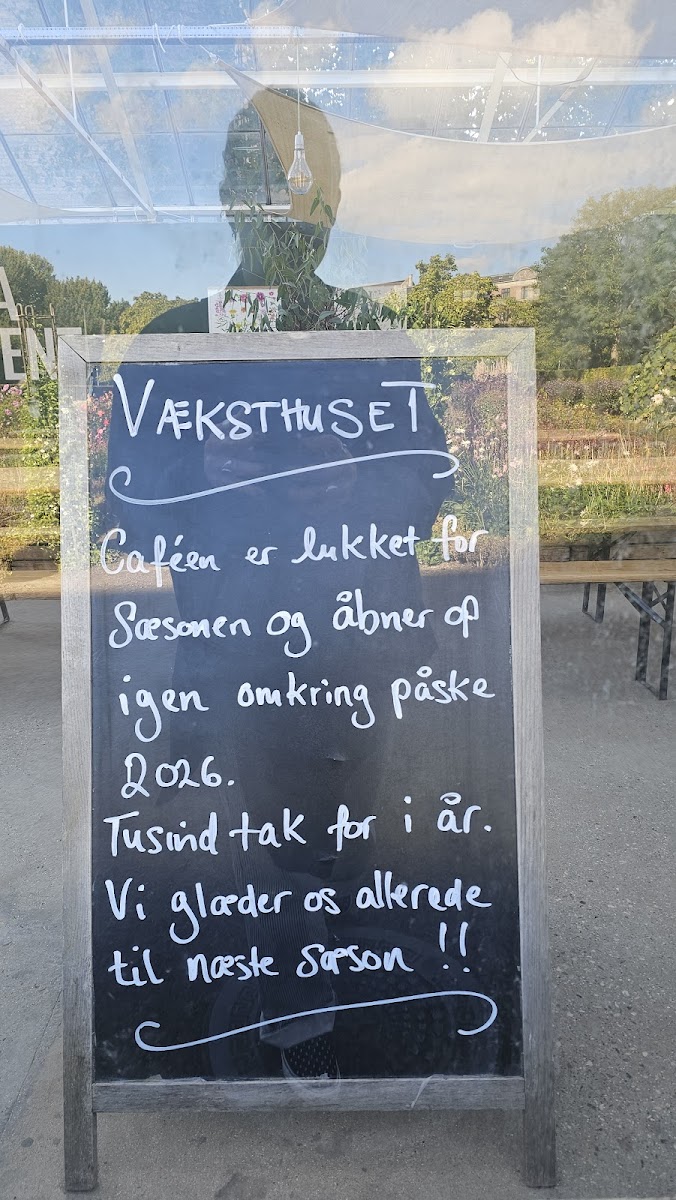 A
EN
VÆKSTHUSET
Caféen er lukket for
Sæsonen og åbner op
igen omkring påske
2026.
Tusind tak for i år.
Vi glæder os allerede
til næste sæson !!